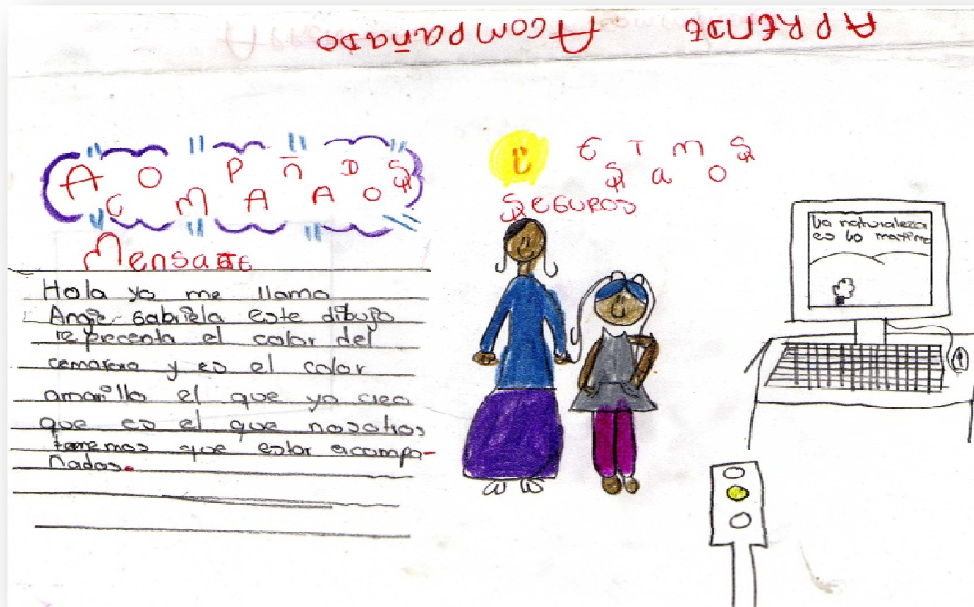 APRENDE Acompañado
ACOMPAÑADOS
ESTAMOS
SEGUROS
Mensaje
Hola yo me llamo
Angie Gabriela este dibujo
reprecenta el color del
cemaforo y es el color
amarillo el que yo creo
que es el que nosotros
tenemos que estar acompa-
ñados.
La naturaleza
es lo maximo